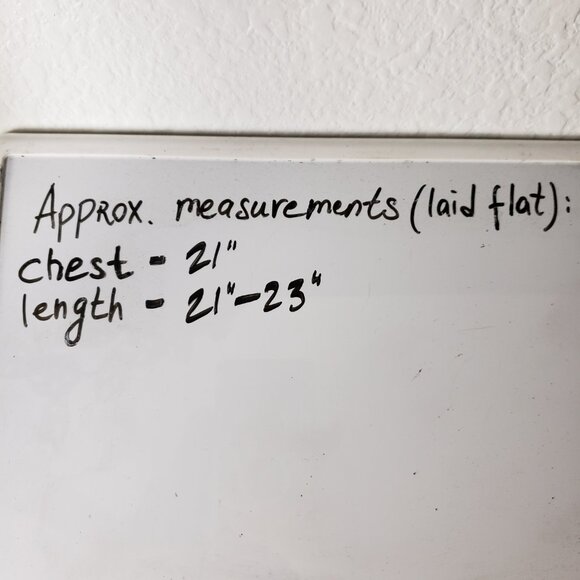 Approx. measurements (laid flat):
chest - 21"
length - 21"-23"